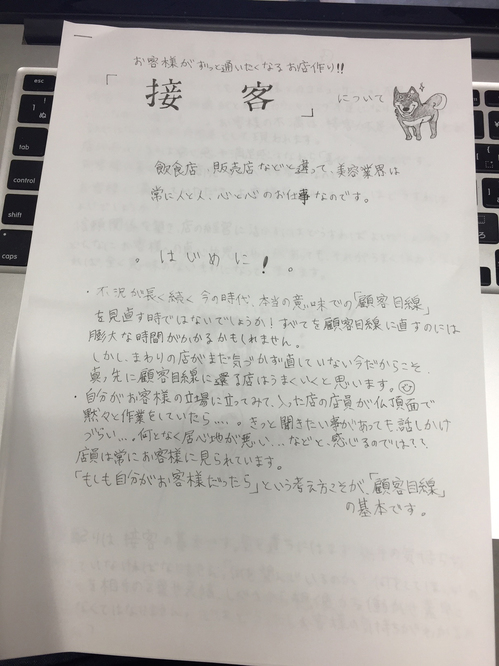 お客様がずっと通いたくなるお店作り!!
「接客」について
飲食店、販売店などと違って、美容業界は
常に人と人、心と心のお仕事なのです。
。はじめに！。
・不況が長く続く今の時代、本当の意味での「顧客目線」
を見直す時ではないでしょうか！すべてを顧客目線に直すのには
膨大な時間がかかるかもしれません。
しかし、まわりの店がまだ気づかず直していない今だからこそ、
真っ先に顧客目線に還る店はうまくいくと思います。
・自分がお客様の立場に立ってみて、入った店の店員が仏頂面で
黙々と作業をしていたら....。きっと聞きたい事があっても話しかけ
づらい...。何となく居心地が悪い...などと、感じるのでは??
店員は常にお客様に見られています。
「もしも自分がお客様だったら」という考え方こそが、「顧客目線」
の基本です。
esc
tab
control
shift
fn